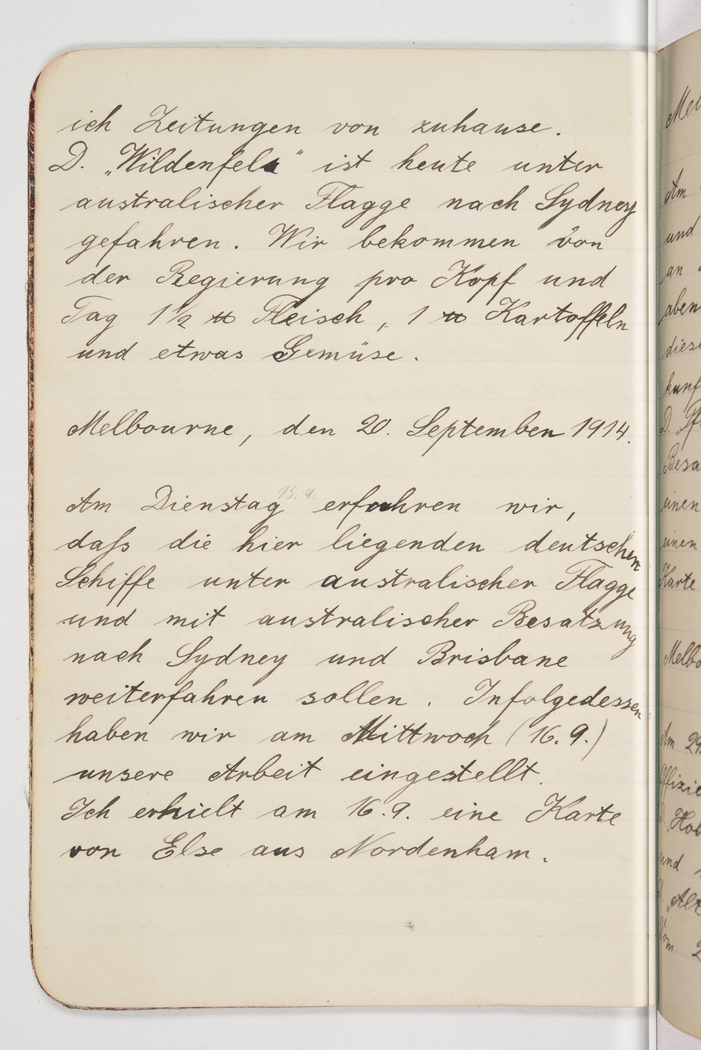 ich Zeitungen von zuhause.
D. „Wildenfels" ist heute unter
australischer Flagge nach Sydney
gefahren. Wir bekommen von
der Regierung pro Kopf und
Tag 1½ ℔ Fleisch, 1 ℔ Kartoffeln
und etwas Gemüse.
Melbourne, den 20. September 1914.
15.9.
Am Dienstag erfuhren wir,
daß die hier liegenden deutschen
Schiffe unter australischer Flagge
und mit australischer Besatzung
nach Sydney und Brisbane
weiterfahren sollen. Infolgedessen
haben wir am Mittwoch (16.9.)
unsere Arbeit eingestellt.
Ich erhielt am 16.9. eine Karte
von Else aus Nordenham.
und
an
aben
diese
einen
einen
Karte
und